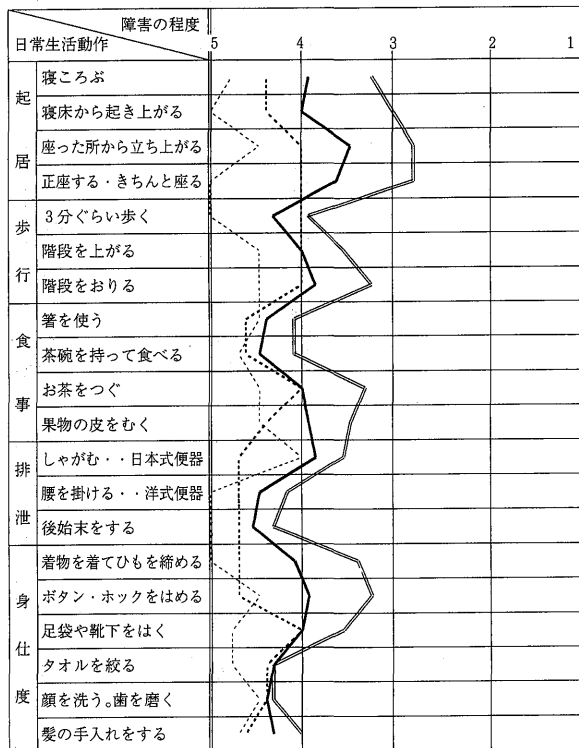 障害の程度
日常生活動作
5 4 3 2 1
起居
寝ころぶ
寝床から起き上がる
座った所から立ち上がる
正座する・きちんと座る
歩行
3分ぐらい歩く
階段を上がる
階段をおりる
食事
箸を使う
茶碗を持って食べる
お茶をつぐ
果物の皮をむく
排泄
しゃがむ・・日本式便器
腰を掛ける・・洋式便器
後始末をする
身仕度
着物を着てひもを締める
ボタン・ホックをはめる
足袋や靴下をはく
タオルを絞る
顔を洗う。歯を磨く
髪の手入れをする